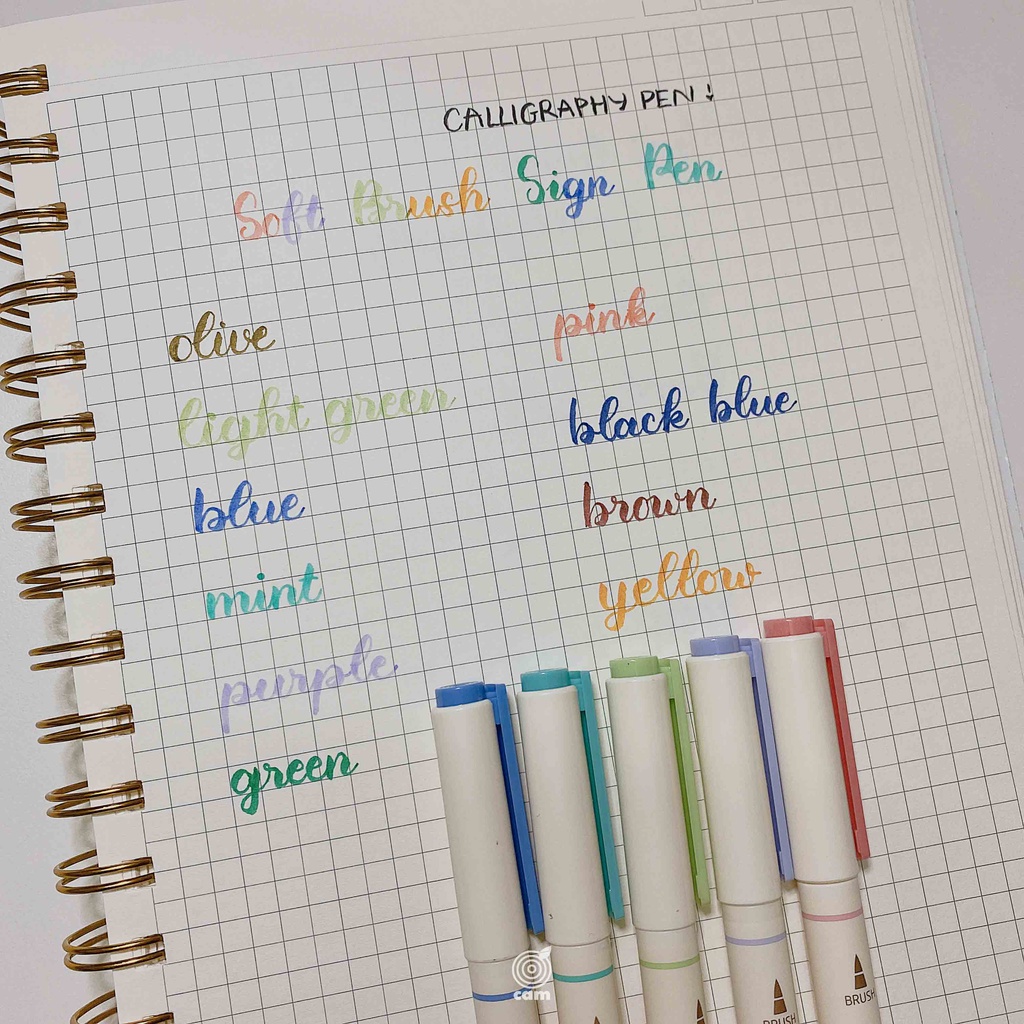 CALLIGRAPHY PEN!
Soft Brush Sign Pen
olive
light green
blue
mint
purple
green
pink
black blue
brown
yellow
BRUSH
BRUSH
cam